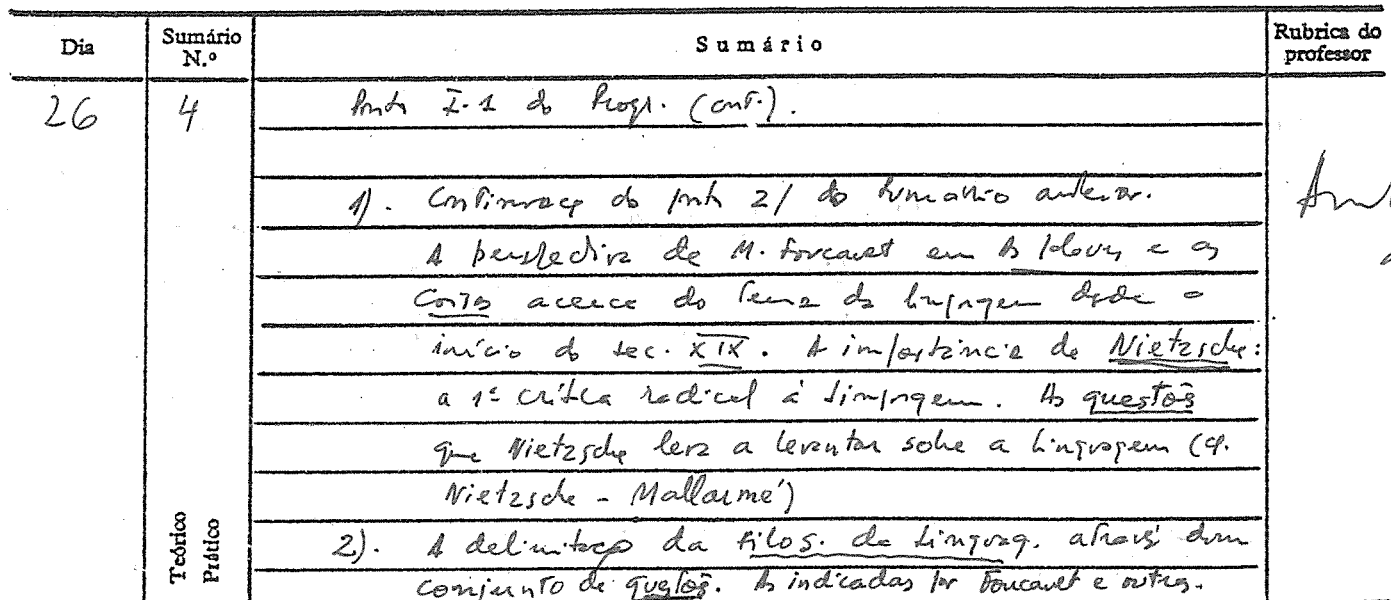 Dia
Sumário N.º
Sumário
Rubrica do professor
26
4
Ponto I.1 do Progr. (cont.).
1). Continuação do ponto 2/ do sumário anterior.
A perspectiva de M. Foucault em As Palavras e as
Coisas acerca do tema da linguagem desde o
início do séc. XIX. A importância de Nietzsche:
a 1ª crítica radical à linguagem. As questões
que Nietzsche leva a levantar sobre a linguagem (cf.
Nietzsche - Mallarmé)
2). A delimitação da Filos. da Linguag. através dum
conjunto de questões. As indicadas por Foucault e outras.
Teórico
Prático